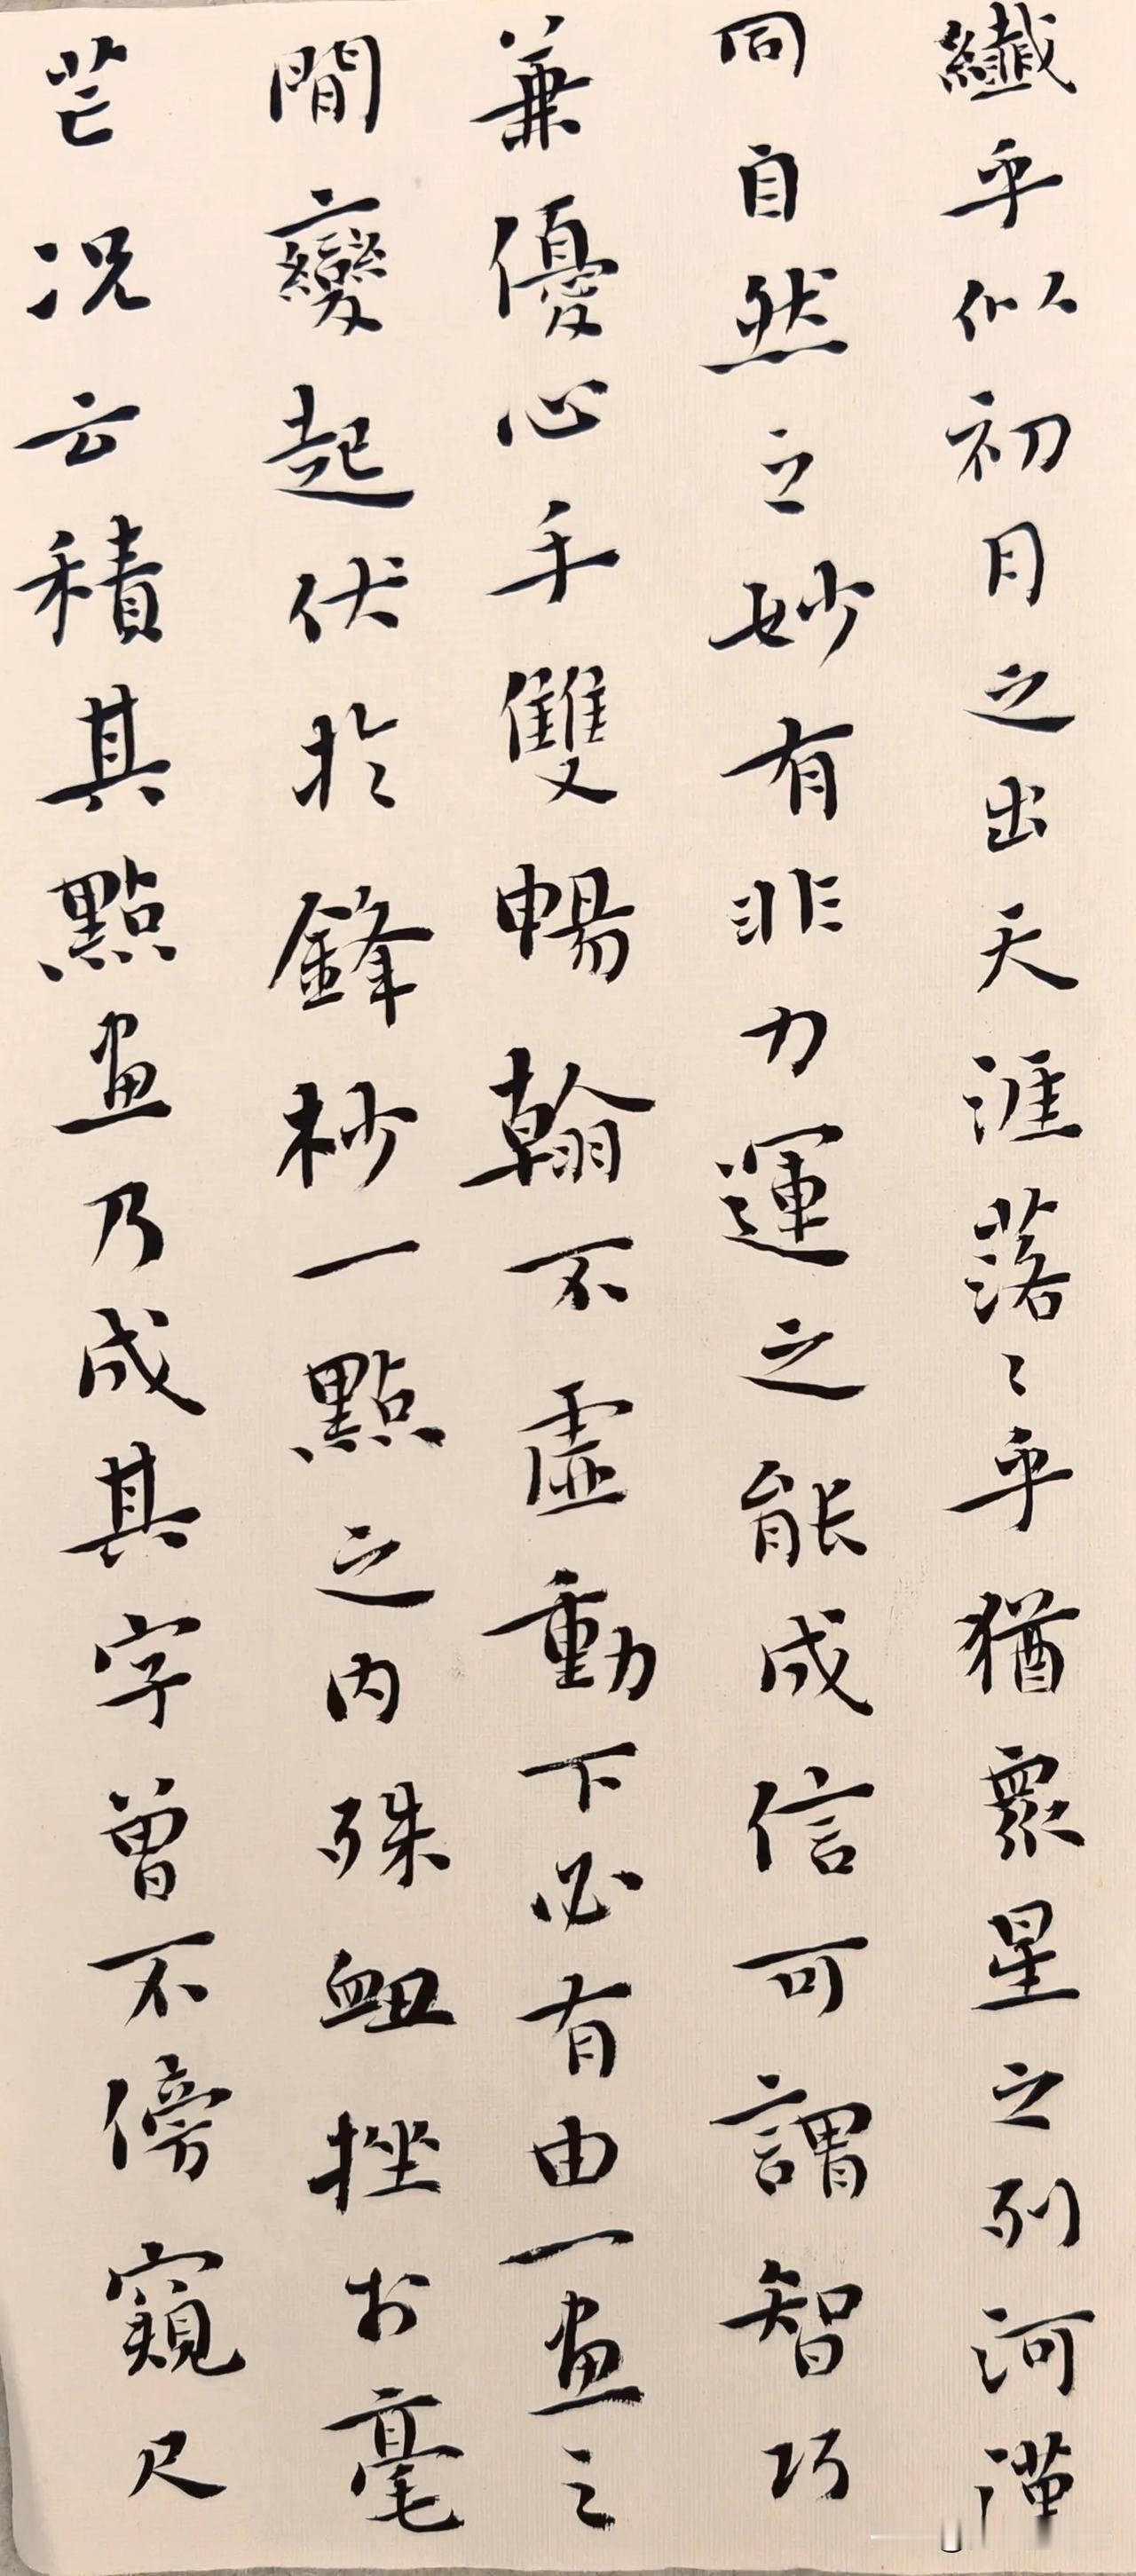 纖乎似初月之出天涯落〻乎猶衆星之列河漢
同自然之妙有非力運之能成信可謂智巧
兼優心手雙暢翰不虛動下必有由一畫之
間變起伏於鋒杪一點之内殊衄挫於毫
芒况云積其點畫乃成其字曾不傍窺尺